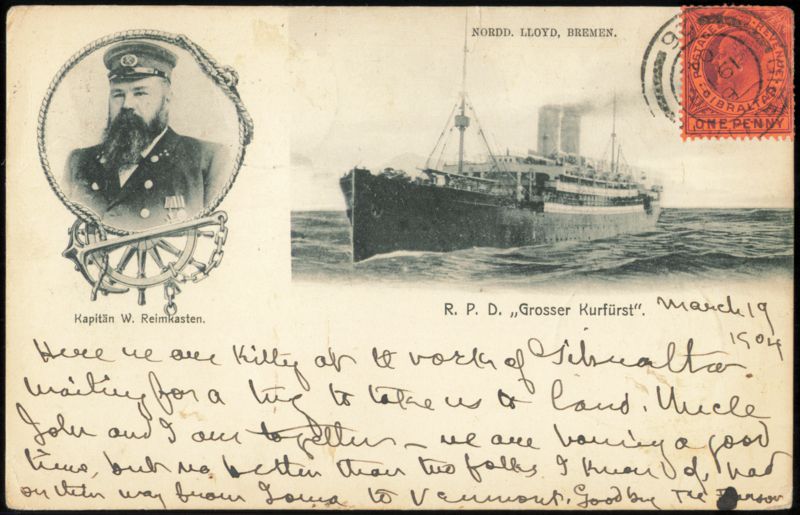 NORDD. LLOYD, BREMEN.
POSTAGE & REVENUE
GIBRALTAR
ONE PENNY
Kapitän W. Reimkasten.
R. P. D. „Grosser Kurfürst".
March 19
1904
Here we are Kitty at the rock of Gibraltar
waiting for a tug to take us to land. Uncle
John and I are together – we are having a good
time, but no better than two folks I know of, had
on their way from Iowa to Vermont. Goodby The